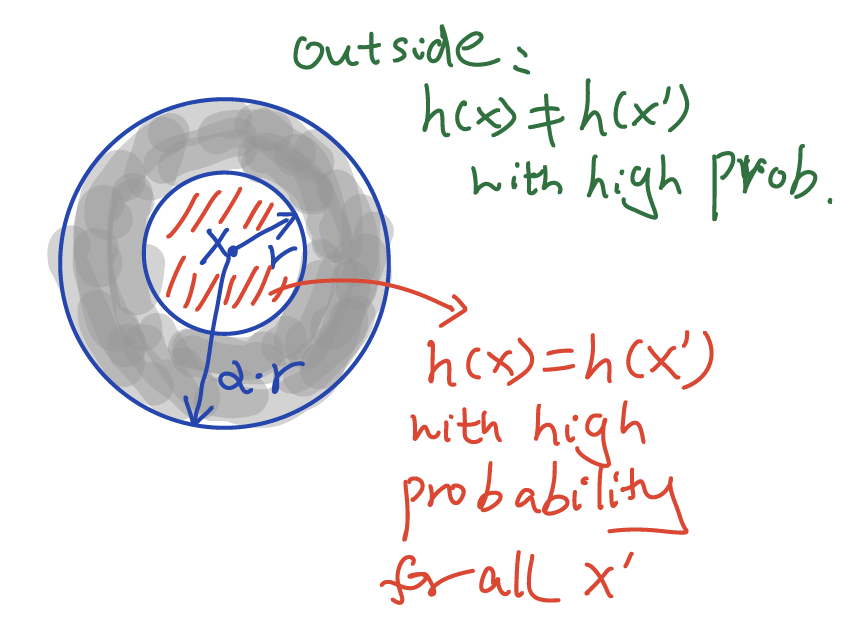 outside:
h(x) ≠ h(x')
with high prob.
x
r
α·r
h(x) = h(x')
with high
probability
for all x'